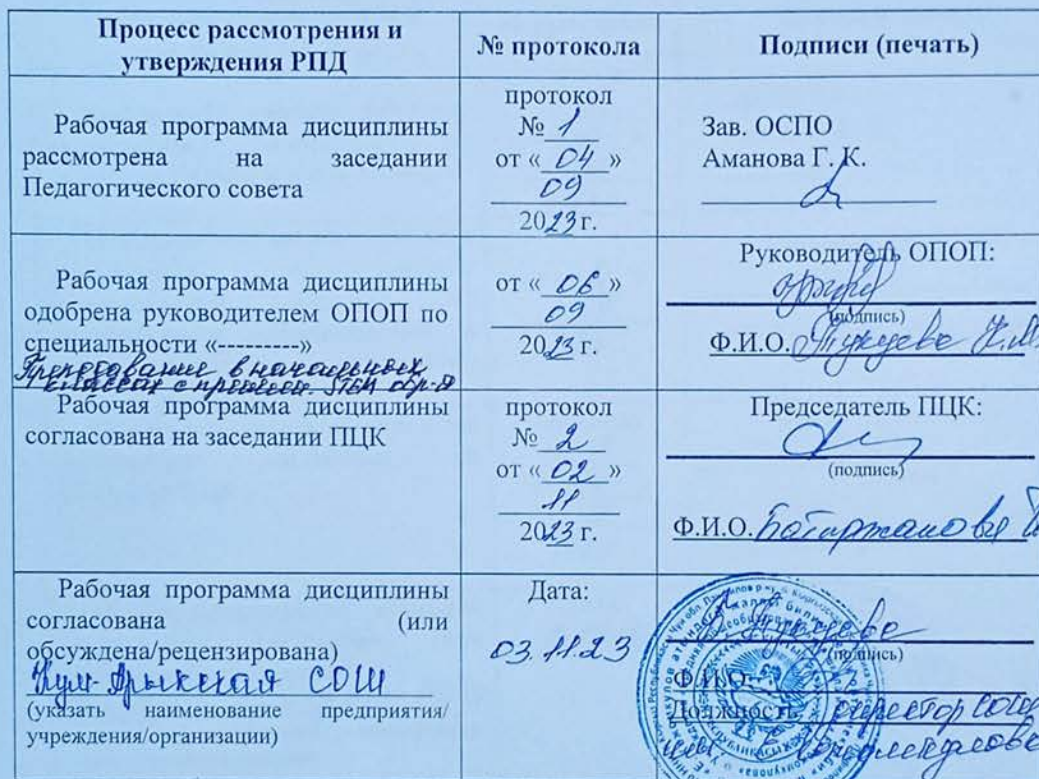 Процесс рассмотрения и
утверждения РПД
№ протокола
Подписи (печать)
Рабочая программа дисциплины
рассмотрена на заседании
Педагогического совета
протокол
№ 1
от « 04 »
09
2023 г.
Зав. ОСПО
Аманова Г. К.
Рабочая программа дисциплины
одобрена руководителем ОПОП по
специальности «---------»
Преподавание в начальных
классах с STEM
от « 06 »
09
2023 г.
Руководитель ОПОП:
(подпись)
Ф.И.О.
Рабочая программа дисциплины
согласована на заседании ПЦК
протокол
№ 2
от « 02 »
11
2023 г.
Председатель ПЦК:
(подпись)
Ф.И.О.
Рабочая программа дисциплины
согласована (или
обсуждена/рецензирована)
СОШ
(указать наименование предприятия/
учреждения/организации)
Дата:
03.11.23
(подпись)
Ф.И.О.
Должность директор СОШ